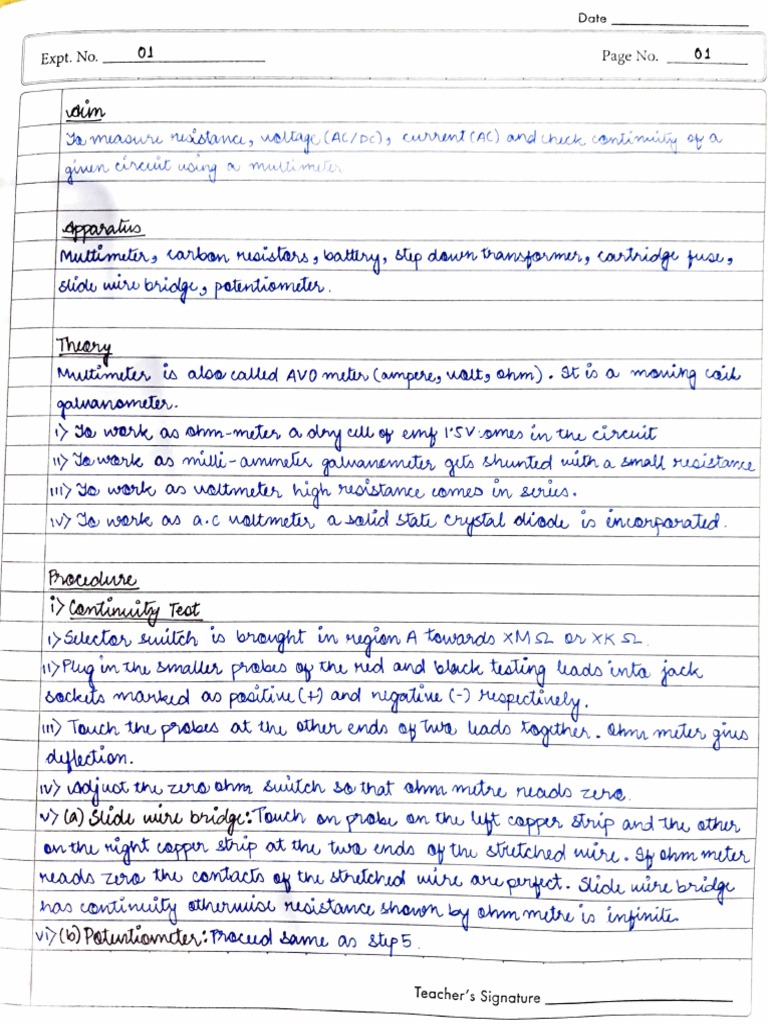 Date
Expt. No. 01
Page No. 01
Aim
To measure resistance, voltage (AC/DC), current (AC) and check continuity of a
given circuit using a multimeter
Apparatus
Multimeter, carbon resistors, battery, step down transformer, cartridge fuse,
slide wire bridge, potentiometer.
Theory
Multimeter is also called AVO meter (ampere, volt, ohm). It is a moving coil
galvanometer.
i) To work as ohm-meter a dry cell of emf 1.5V omes in the circuit
ii) To work as milli-ammeter galvanometer gets shunted with a small resistance
iii) To work as voltmeter high resistance comes in series.
iv) To work as a.c voltmeter a solid state crystal diode is incorporated.
Procedure
i) Continuity Test
i) Selector switch is brought in region A towards XMΩ or XKΩ.
ii) Plug in the smaller probes of the red and black testing leads into jack
sockets marked as positive (+) and negative (-) respectively.
iii) Touch the probes at the other ends of two leads together. Ohm meter gives
deflection.
iv) Adjust the zero ohm switch so that ohm metre reads zero.
v) (a) Slide wire bridge: Touch on probe on the left copper strip and the other
on the right copper strip at the two ends of the stretched wire. If ohm meter
reads zero the contacts of the stretched wire are perfect. Slide wire bridge
has continuity otherwise resistance shown by ohm metre is infinite
vi) (b) Potentiometer: Proceed same as step 5.
Teacher's Signature